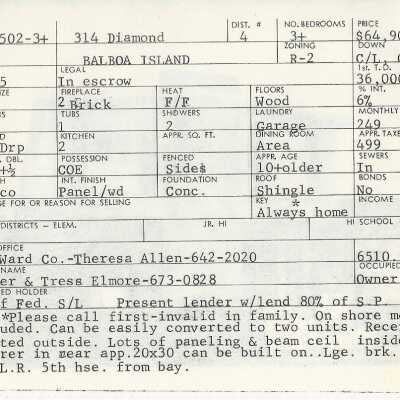 DIST. # NO. BEDROOMS PRICE
502-3+ 314 Diamond 4 3+ $64,90
ZONING DOWN
BALBOA ISLAND R-2 C/L,
LEGAL 1st. T.D.
5 In escrow 36,000
ZE FIREPLACE HEAT FLOORS % INT.
2 Brick F/F Wood 6%
TUBS SHOWERS LAUNDRY MONTHLY
1 2 Garage 249
KITCHEN APPR. SQ. FT. DINING ROOM APPR. TAXE
Drp 2 Area 499
DBL. POSSESSION FENCED APPR. AGE SEWERS
+½ COE Sides 10+older In
INT. FINISH FOUNDATION ROOF BONDS
co Panel/wd Conc. Shingle No
GE FOR OR REASON FOR SELLING KEY * INCOME
Always home
DISTRICTS - ELEM. JR. HI HI SCHOOL
OFFICE
Ward Co.-Theresa Allen-642-2020 6510.
NAME OCCUPIED
er & Tress Elmore-673-0828 Owner
ED HOLDER
f Fed. S/L Present lender w/lend 80% of S.P.
*Please call first-invalid in family. On shore mo
uded. Can be easily converted to two units. Rece
ted outside. Lots of paneling & beam ceil insid
rer in near app.20x30 can be built on..Lge. brk.
L.R. 5th hse. from bay.